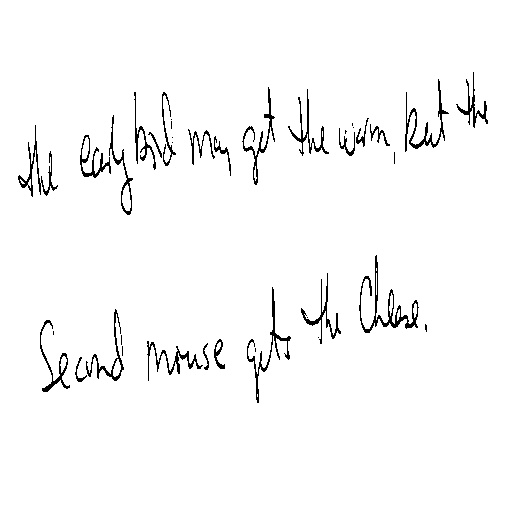 the early bird may get the worm, but the
Second mouse gets the Cheese.